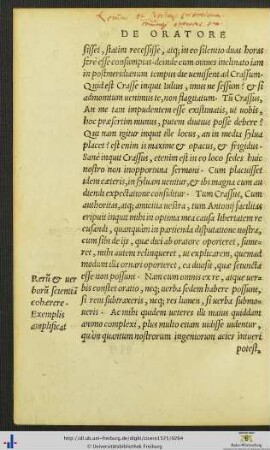 DE ORATORE
sisset, statim recessisse, atq; in eo silentio duas horas
ferè esse consumptas: deinde cum omnes inclinato iam
in postmeridianum tempus die venissent ad Crassum,
Quid est Crasse inquit Iulius, imus ne sessum? etsi
admonitum uenimus te, non flagitatum. Tũ Crassus,
An me tam impudentem esse existimatis, ut uobis,
hoc præsertim munus, putem diutius posse debere?
Qui nam igitur inquit ille locus, an in media sylua
placet? est enim is maxime & opacus, & frigidus.
Sane inquit Crassus, etenim est in eo loco sedes huic
nostro non inopportuna sermoni. Cum placuisset
idem cæteris, in syluam uenitur, & ibi magna cum au
diendi expectatione considitur. Tum Crassus, Cum
authoritas, atq; amicitia uestra, tum Antonij facilitas
eripuit inquit mihi in optima mea causa libertatem re
cusandi, quanquam in partienda disputatione nostra,
cum sibi de ijs, quæ dici ab oratore oporteret, sume-
ret, mihi autem relinqueret, ut explicarem, quemad
modum illa ornari oporteret, ea diuisit, quæ seiuncta
esse non possunt. Nam cum omnis ex re, atque uer
Rerũ & uer
bis constet oratio, neq; uerba sedem habere possunt,
borũ scientiã
si rem subtraxeris, neq; res lumen, si uerba submo
cohærere.
ueris. Ac mihi quidem ueteres illi maius quiddam
Exemplis
animo complexi, plus multo etiam uidisse uidentur,
amplificat
quàm quantum nostrorum ingeniorum acies intueri
potest,
http://dl.ub.uni-freiburg.de/diglit/cicero1521/0294
© Universitätsbibliothek Freiburg